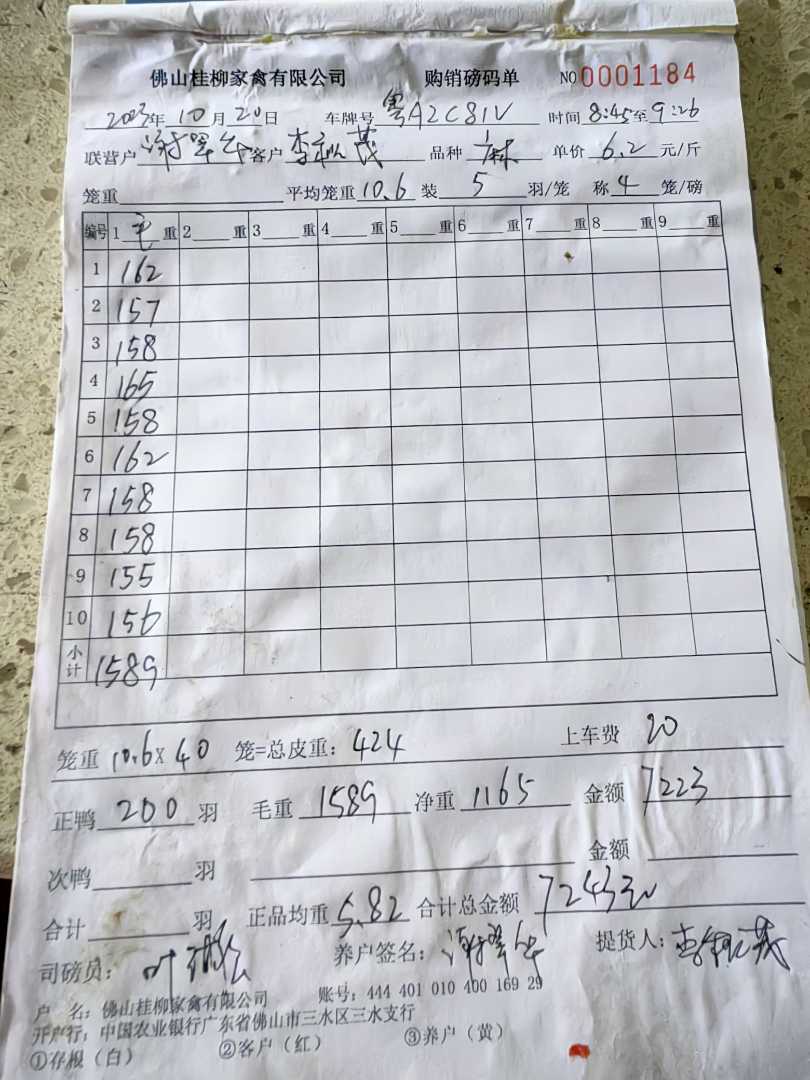 佛山桂柳家禽有限公司 购销磅码单 NO 0001184
2023年 10月 20日 车牌号 粤A2C81V 时间 8:45至9:26
联营户 客户 李 茂 品种 麻 单价 6.2 元/斤
笼重 平均笼重 10.6 装 5 羽/笼 称 4 笼/磅
编号 1 毛 重 2 重 3 重 4 重 5 重 6 重 7 重 8 重 9 重
1 162
2 157
3 158
4 165
5 158
6 162
7 158
8 158
9 155
10 156
小计 1589
笼重 10.6×40 笼=总皮重: 424 上车费 20
正鸭 200 羽 毛重 1589 净重 1165 金额 7223
次鸭 羽 金额
合计 羽 正品均重 5.82 合计总金额 7243元
司磅员: 叶 养户签名: 提货人: 李 茂
户 名: 佛山桂柳家禽有限公司 账号: 444 401 010 400 169 29
开户行: 中国农业银行广东省佛山市三水区三水支行
①存根（白） ②客户（红） ③养户（黄）